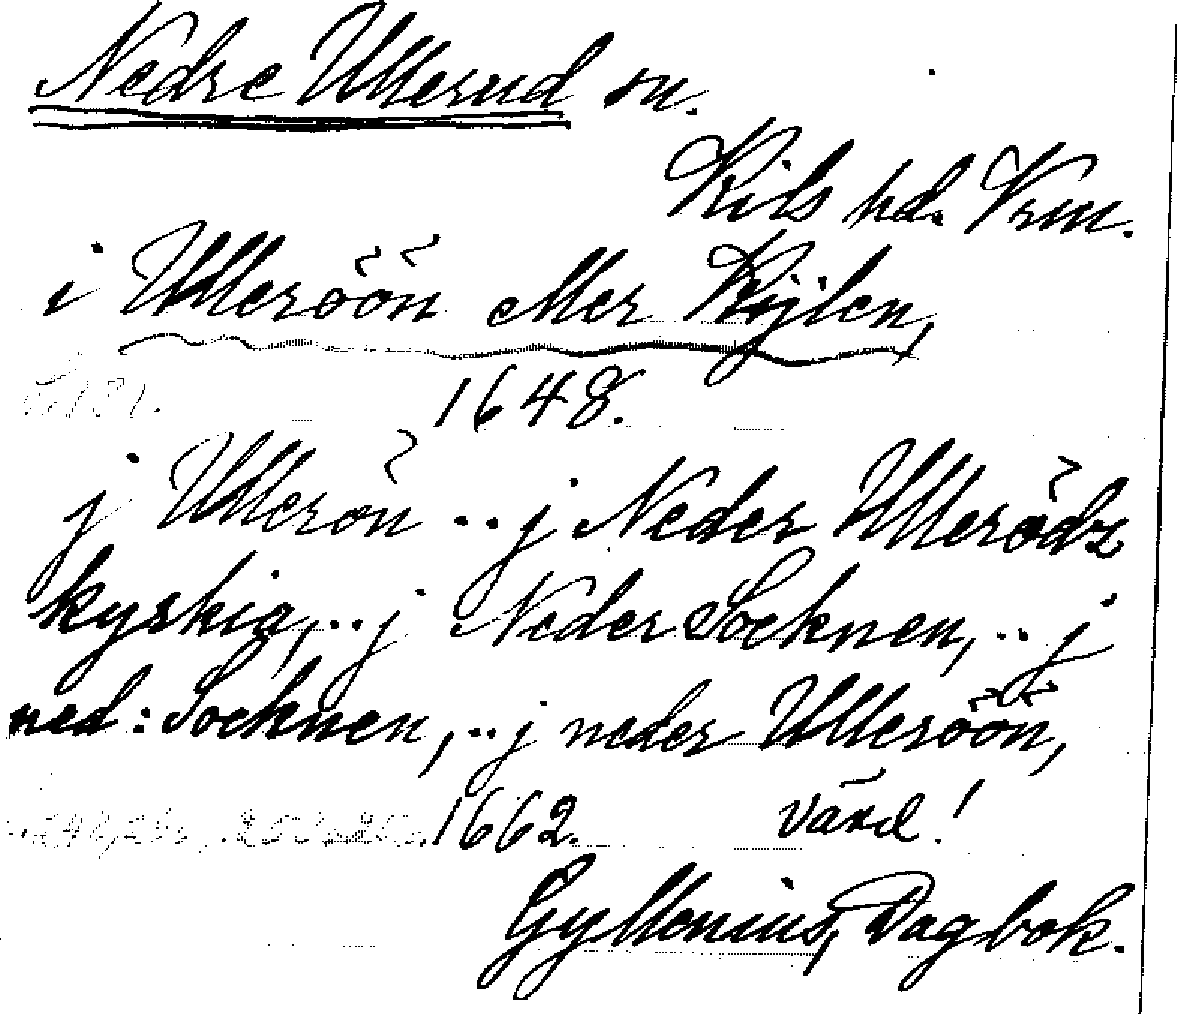 Nedre Ullerud sn.
Kils hd. Vrm.
i Ulleröön eller Kijlen,
1648.
j Ullerön .. j Neder Ullerödz
kyrkia, .. j Neder Socknen, .. j
ned: Socknen, .. j neder Ulleröön,
1662. värd!
Gyllenius, Dagbok.